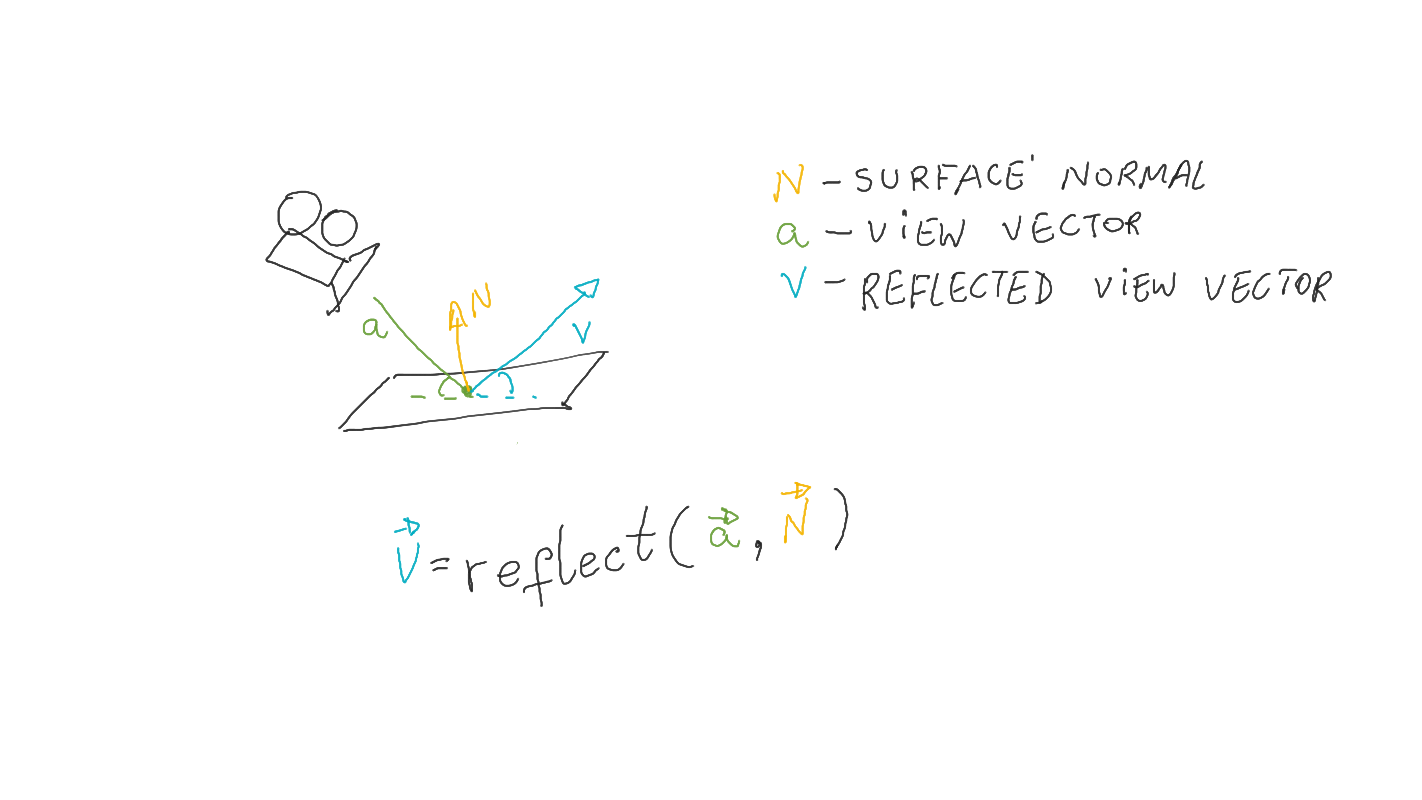 N - SURFACE' NORMAL
a - ViEW VECTOR
V - REFLECTED ViEW VECTOR
N
a
V
V = reflect(a, N)